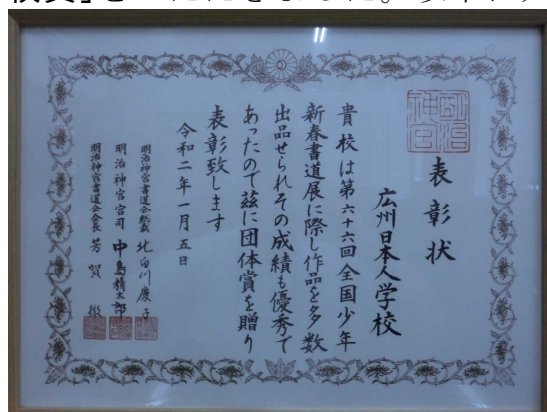 明治神宮
表彰状
広州日本人学校
貴校は第六十六回全国少年
新春書道展に際し作品を多数
出品せられその成績も優秀で
あったので茲に団体賞を贈り
表彰致します
令和二年一月五日
明治神宮書道会総裁 北白川慶子
明治神宮宮司 中島精太郎
明治神宮書道会会長 芳賀徹